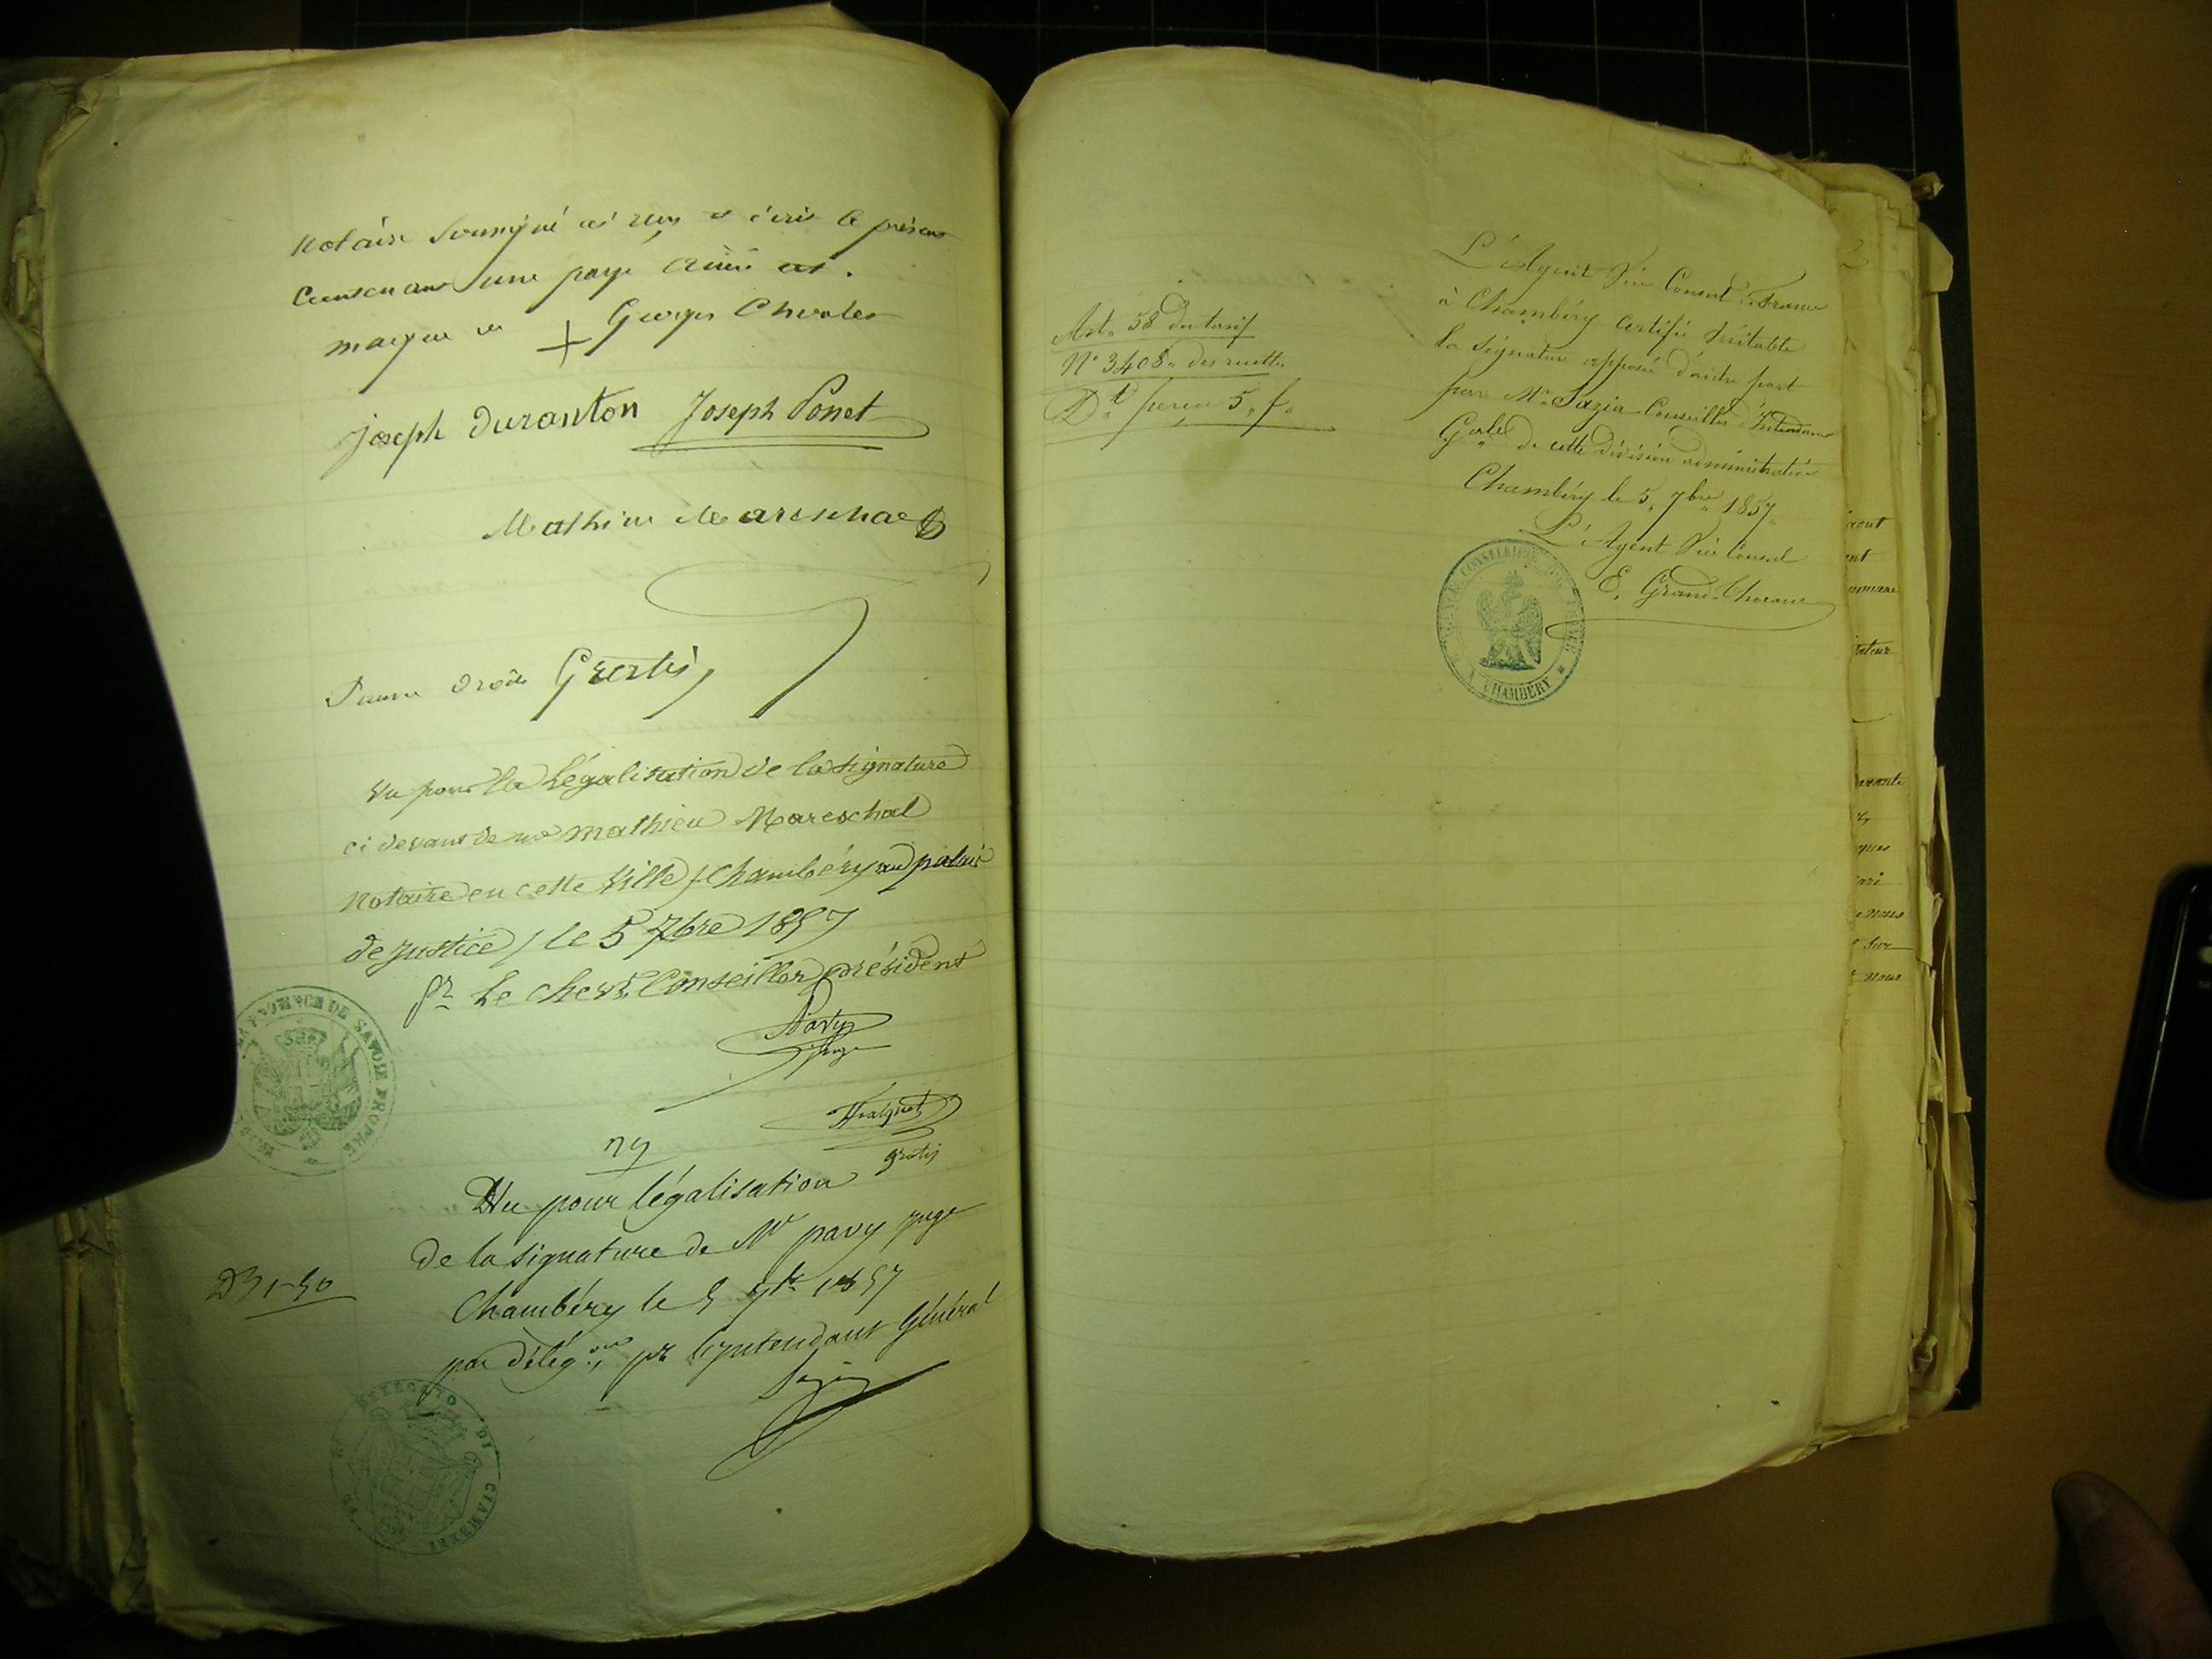 Notaire soussigné ai reçu et écrit le présent
contenant une page
marque de + Georges Chvalet
joseph duranton Joseph Ponet
Mathieu Mareschal
Pauvre droits Gratis
Vu pour la Légalisation de la signature
ci devant de me Mathieu Mareschal
Notaire en cette Ville / Chambéry au palais
de justice / le 5 7bre 1857
pr Le chevr. Conseiller président
Pavy
juge
gratis
Vu pour légalisation
De la signature de Mr pavy juge
Chambéry le 5 7bre 1857
par délég.on pr l'intendant Général
LA PROVINCE DE SAVOIE PROPRE
DELEGATO DI CIAMBERI
Art. 58 du tarif
N° 3408 des recettes
Dt perçu 5 f.
L'Agent Vice Consul de France
à Chambéry certifie véritable
la signature apposée d'autre part
par Mr. Sazia Conseiller Intendant
Gerle de cette division administrative
Chambéry le 5, 7bre 1857
L'Agent Vice Consul
E. Grand-Thorane
AGENCE CONSULAIRE DE FRANCE
A CHAMBERY
2